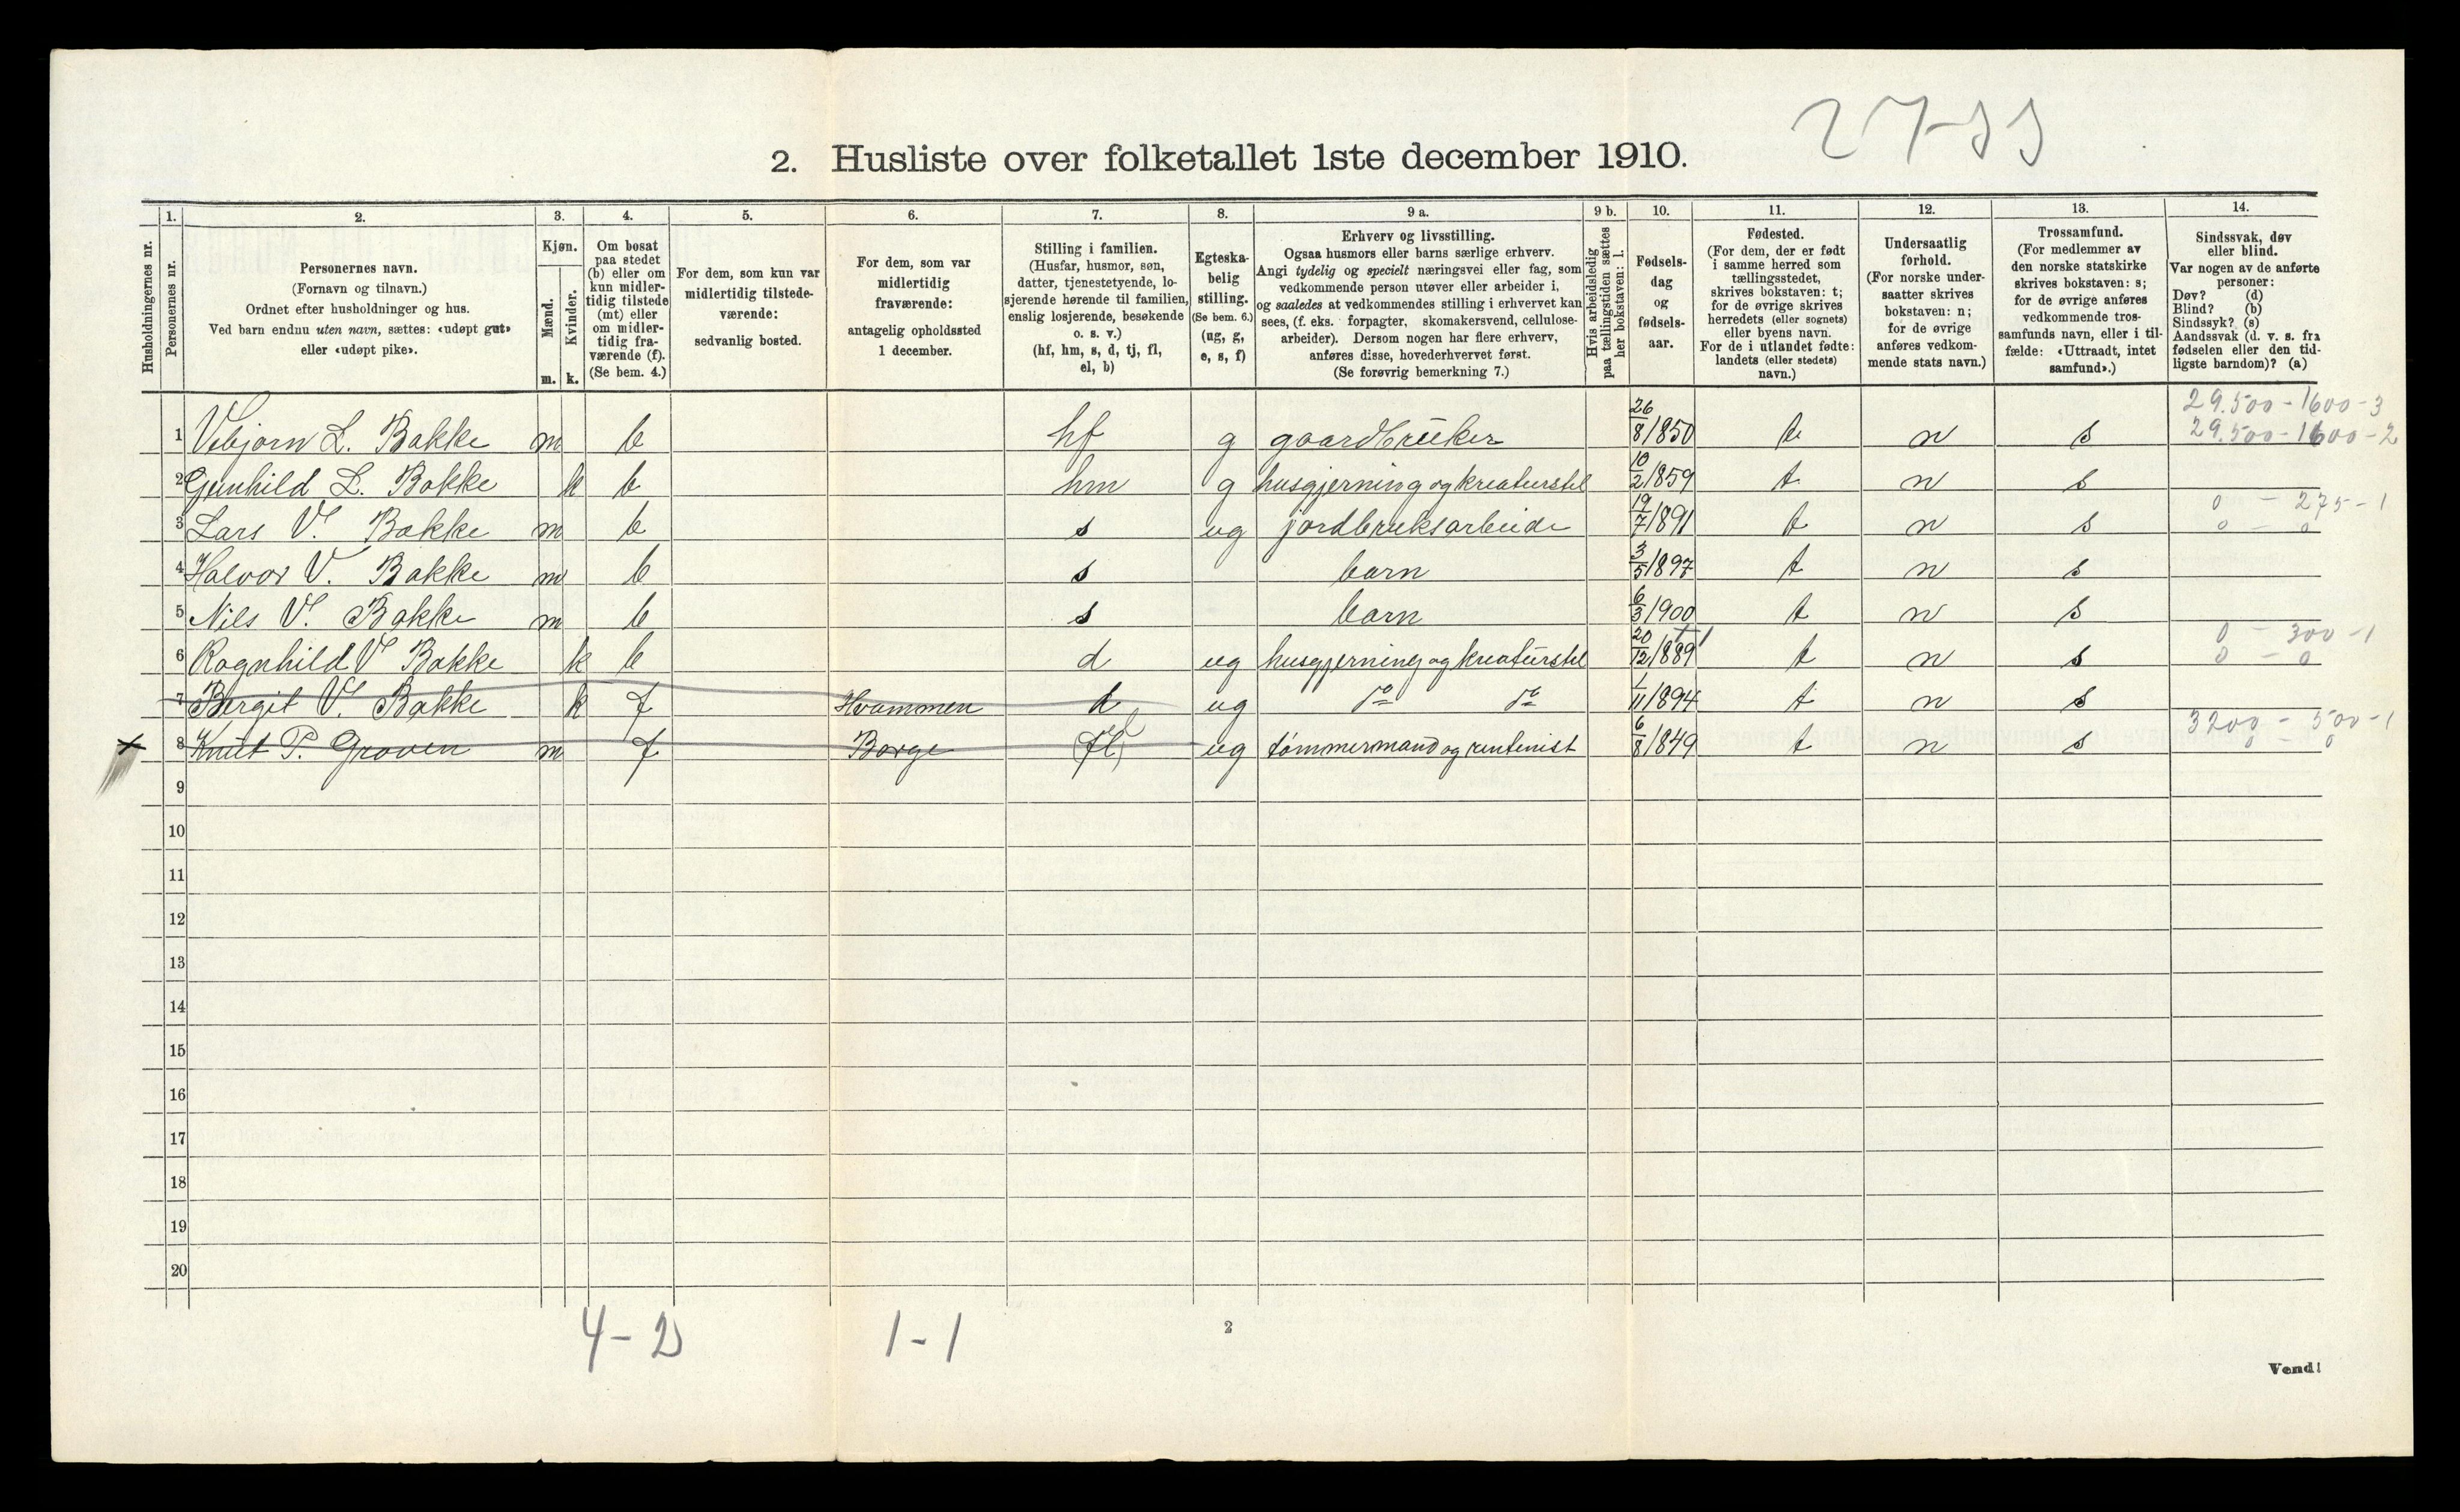 27-33
2. Husliste over folketallet 1ste december 1910.
Husholdningernes nr.
1.
Personernes nr.
2.
Personernes navn.
(Fornavn og tilnavn.)
Ordnet efter husholdninger og hus.
Ved barn endnu uten navn, sættes: «udøpt gut»
eller «udøpt pike».
3.
Kjøn.
Mænd.
Kvinder.
m. k.
4.
Om bosat
paa stedet
(b) eller om
kun midler-
tidig tilstede
(mt) eller
om midler-
tidig fra-
værende (f).
(Se bem. 4.)
5.
For dem, som kun var
midlertidig tilstede-
værende:
sedvanlig bosted.
6.
For dem, som var
midlertidig
fraværende:
antagelig opholdssted
1 december.
7.
Stilling i familien.
(Husfar, husmor, søn,
datter, tjenestetyende, lo-
sjerende hørende til familien,
enslig losjerende, besøkende
o. s. v.)
(hf, hm, s, d, tj, fl,
el, b)
8.
Egteska-
belig
stilling.
(Se bem. 6.)
(ug, g,
e, s, f)
9 a.
Erhverv og livsstilling.
Ogsaa husmors eller barns særlige erhverv.
Angi tydelig og specielt næringsvei eller fag, som
vedkommende person utøver eller arbeider i,
og saaledes at vedkommendes stilling i erhvervet kan
sees, (f. eks. forpagter, skomakersvend, cellulose-
arbeider). Dersom nogen har flere erhverv,
anføres disse, hovederhvervet først.
(Se forøvrig bemerkning 7.)
9 b.
Hvis arbeidsledig
paa tællingstiden sættes
her bokstaven: l.
10.
Fødsels-
dag
og
fødsels-
aar.
11.
Fødested.
(For dem, der er født
i samme herred som
tællingsstedet,
skrives bokstaven: t;
for de øvrige skrives
herredets (eller sognets)
eller byens navn.
For de i utlandet fødte:
landets (eller stedets)
navn.)
12.
Undersaatlig
forhold.
(For norske under-
saatter skrives
bokstaven: n;
for de øvrige
anføres vedkom-
mende stats navn.)
13.
Trossamfund.
(For medlemmer av
den norske statskirke
skrives bokstaven: s;
for de øvrige anføres
vedkommende tros-
samfunds navn, eller i til-
fælde: «Uttraadt, intet
samfund».)
14.
Sindssvak, døv
eller blind.
Var nogen av de anførte
personer:
Døv? (d)
Blind? (b)
Sindssyk? (s)
Aandssvak (d. v. s. fra
fødselen eller den tid-
ligste barndom)? (a)
29.500 - 1600 - 3
1 Vebjørn L. Bakke m b hf g gaardbruker 26/8/850 t n s 29.500 - 1600 - 2
2 Gunhild L. Bakke k b hm g husgjerning og kreaturstel 10/2/859 t n s
0 - 275 - 1
3 Lars V. Bakke m b s ug jordbruksarbeide 19/7/891 t n s 0 - 0
4 Halvor V. Bakke m b s barn 3/5/897 t n s
5 Nils V. Bakke m b s barn 6/3/900 t n s
0 - 300 - 1
6 Ragnhild V Bakke k b d ug husgjerning og kreaturstel 20/12/889 t n s 0 - 0
7 Bergit V. Bakke k f Hvammen d ug do do 1/11/894 t n s
3200 - 500 - 1
x 8 Knut P. Groven m f Borge fl ug tømmermand og rentenist 6/8/849 t n s 0 - 0
9
10
11
12
13
14
15
16
17
18
19
20
4 - 2 1 - 1
2
Vend!